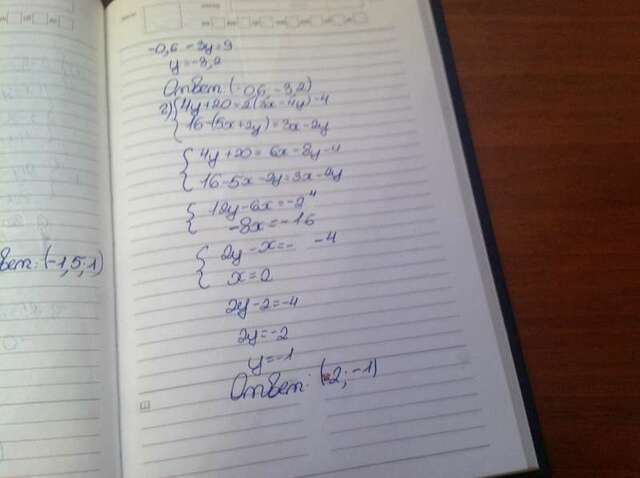 -0,6 - 3y = 9
y = -3,2
Ответ: (-0,6; -3,2)
г) { 4y + 20 = 2(3x - 4y) - 4
16 - (5x + 2y) = 3x - 2y
{ 4y + 20 = 6x - 8y - 4
16 - 5x - 2y = 3x - 2y
{ 12y - 6x = -24
-8x = -16
{ 2y - x = - -4
x = 2
2y - 2 = -4
2y = -2
y = -1
Ответ: (2; -1)
вет: (-1,5; 1)